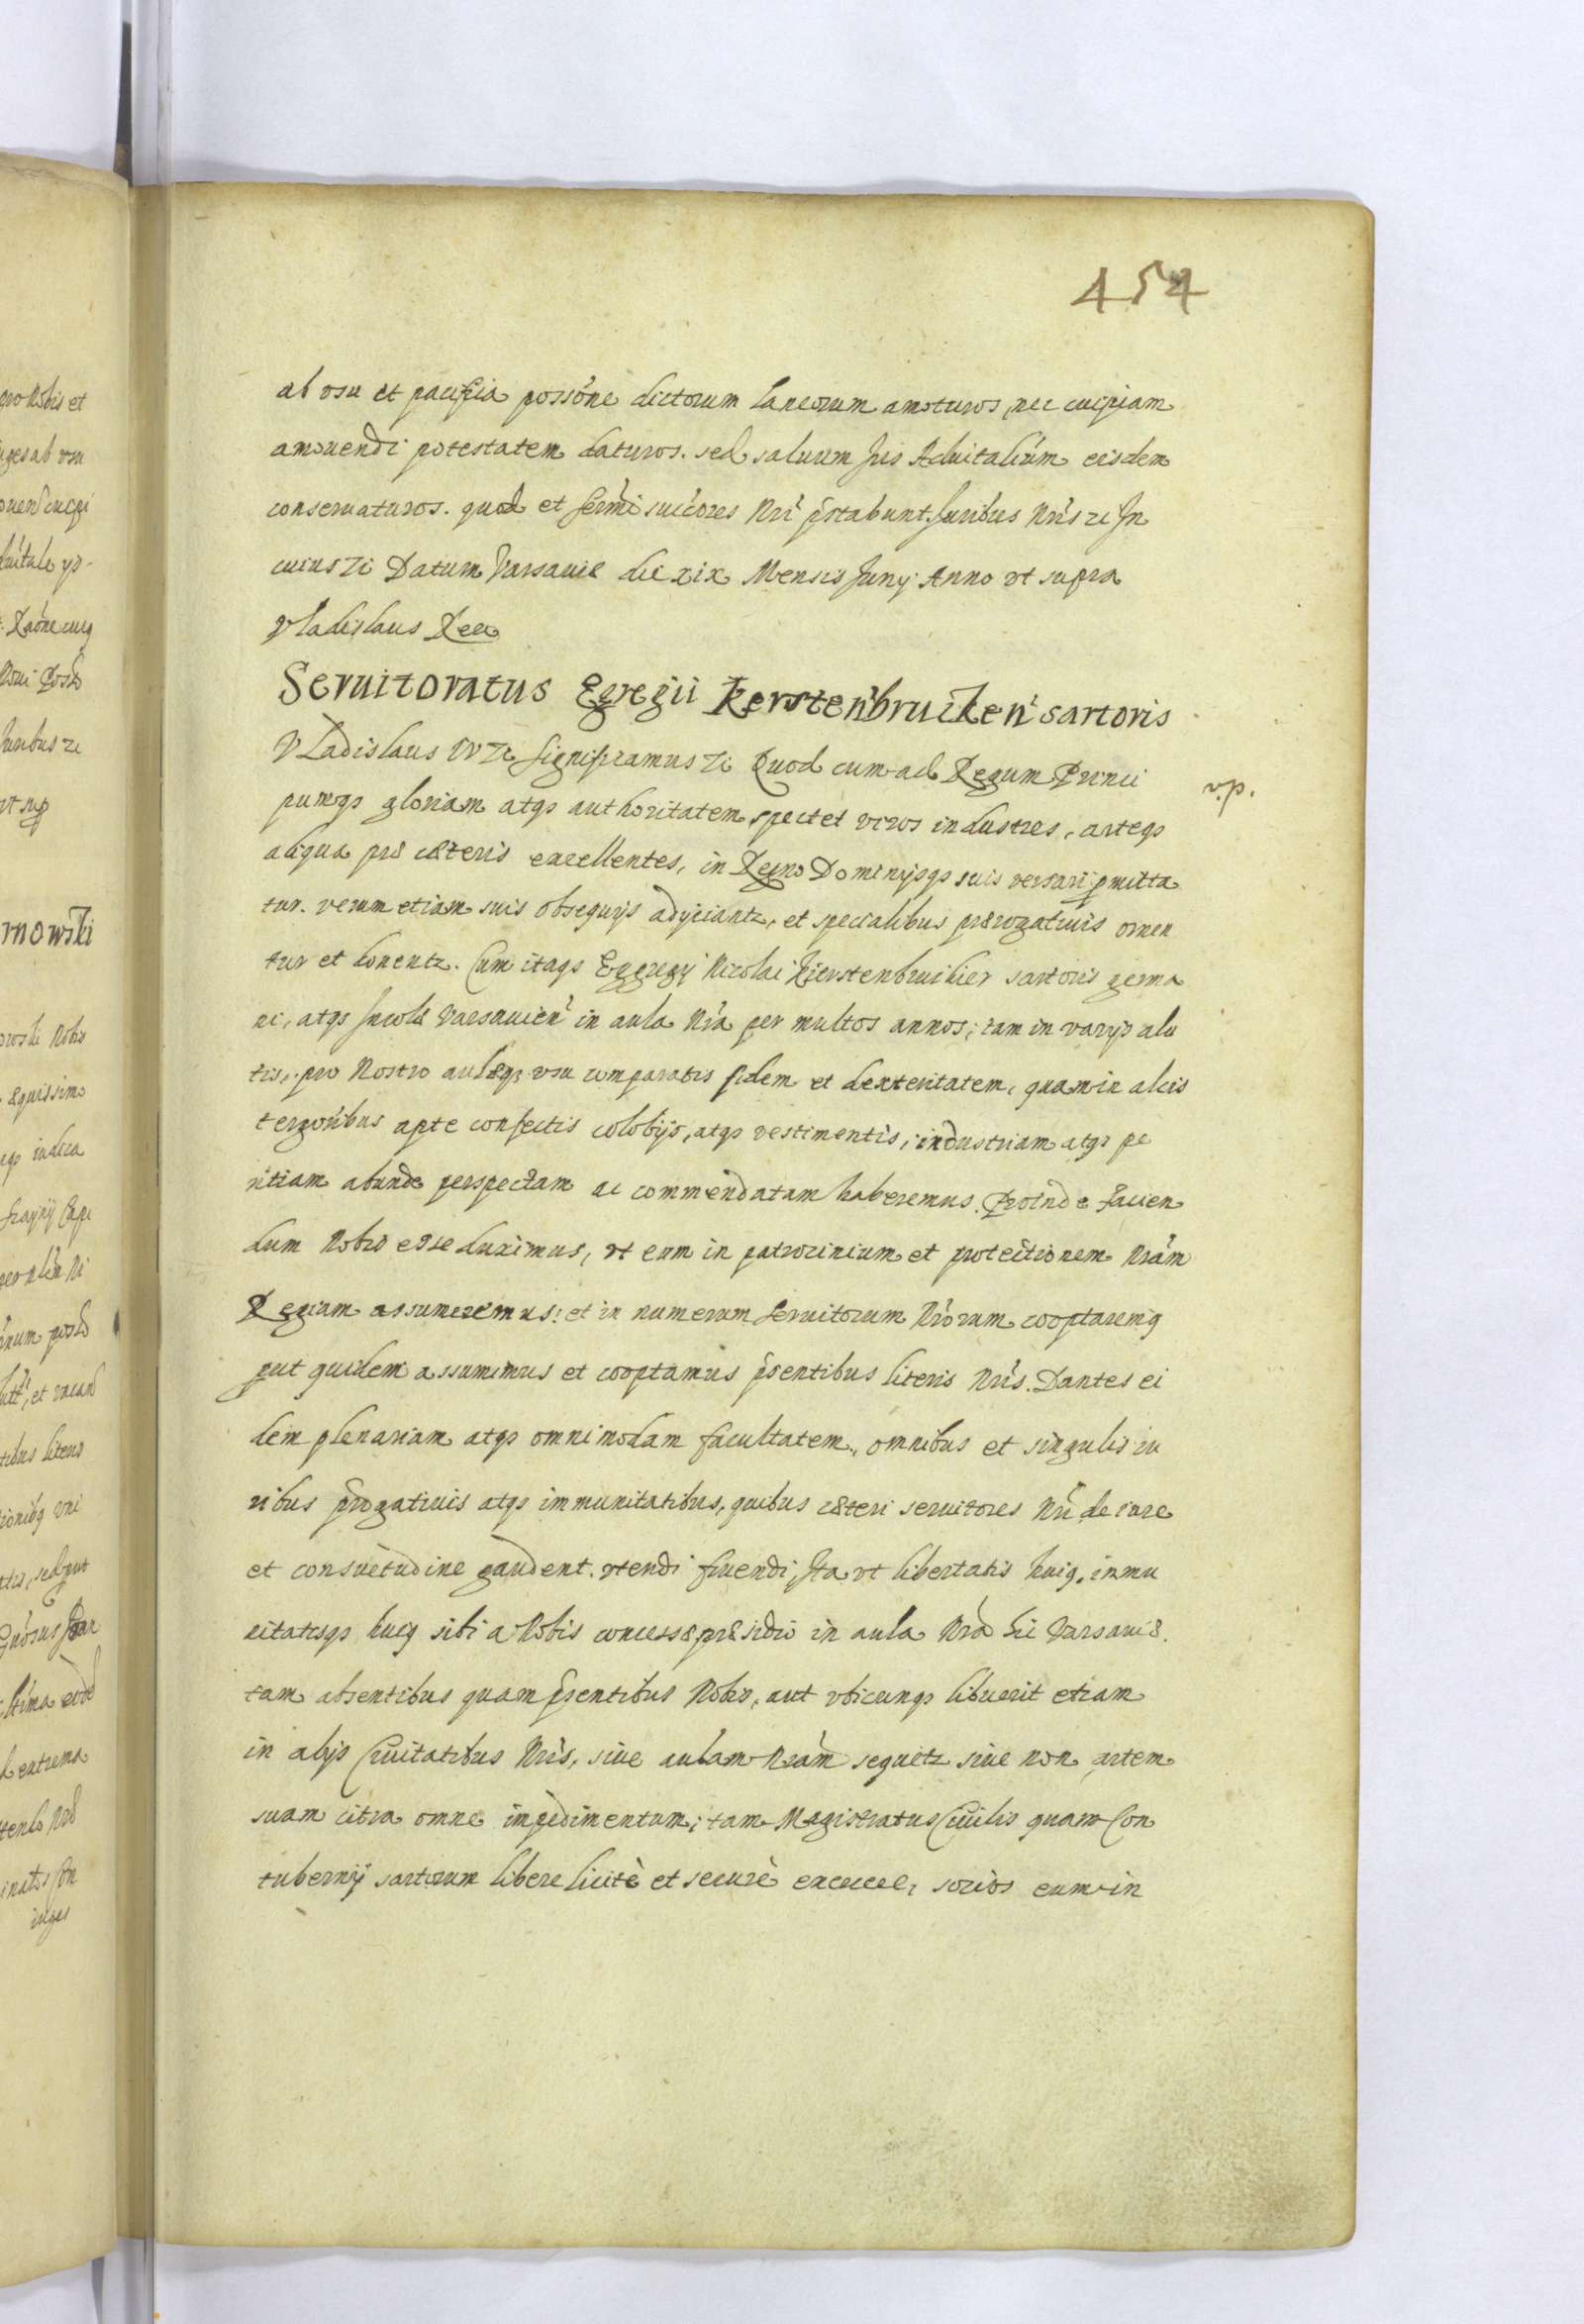 454
ab vsu et pacifica possõne dictorum Laneorum amoturos, nec cuipiam
amouendi potestatem daturos. sed saluum Jus Aduitalium eisdem
conseruaturos. quod et Sermi succores Nri pstabunt. Juribus Nris zc Jn
cuius zc Datum Varsauie die xix Mensis Junij Anno vt supra
Vladislaus Rex
Seruitoratus Egregii Kersten'bruiken' sartoris
VLadislaus IV zc Significamus zc Quod cum ad Regum Princi
pumqs gloriam atqs authoritatem spectet viros industres, arteqs
v.p.
aliqua præ cæteris excellentes, in Regno Dominijsqs suis versari pmitta
tur. verum etiam suis obsequijs adijciantr, et specialibus prærogatiuis ornen
tur et donentr. Cum itaqs Egregij Nicolai Kierstenbruikier sartoris germa
ni, atqs Jncolæ Varsauien' in aula Nra per multos annos, tam in varijs alu
tis, pro Nostro aulæqs vsu comparatis fidem et dexteritatem, quam in alcis
tergoribus apte confectis colobijs, atqs vestimentis, industriam atqs pe
ritiam abunde perspectam ac commendatam haberemus. Proinde facien
dum Nobis esse duximus, vt eum in patrocinium et protectionem Nram
Regiam assumeremus: et in numerum Seruitorum Nrorum cooptaremq
put quidem assumimus et cooptamus psentibus literis Nris. Dantes ei
dem plenariam atqs omnimodam facultatem, omnibus et singulis iu
ribus progatiuis atqs immunitatibus, quibus cæteri seruitores Nri de iure
et consuetudine gaudent. vtendi fruendi, Jta vt libertatis huiq, immu
nitatisqs huiq sibi a Nobis concessæ præsidio in aula Nra hic Varsauiæ.
tam absentibus quam psentibus Nobis, aut vbicunqs libuerit etiam
in alijs Ciuitatibus Nris, siue aulam Nram sequetr siue non artem
suam citra omne impedimentum, tam Magistratus Ciuilis quam Con
tubernij sartorum libere licitè et securè exercere, socios eum in